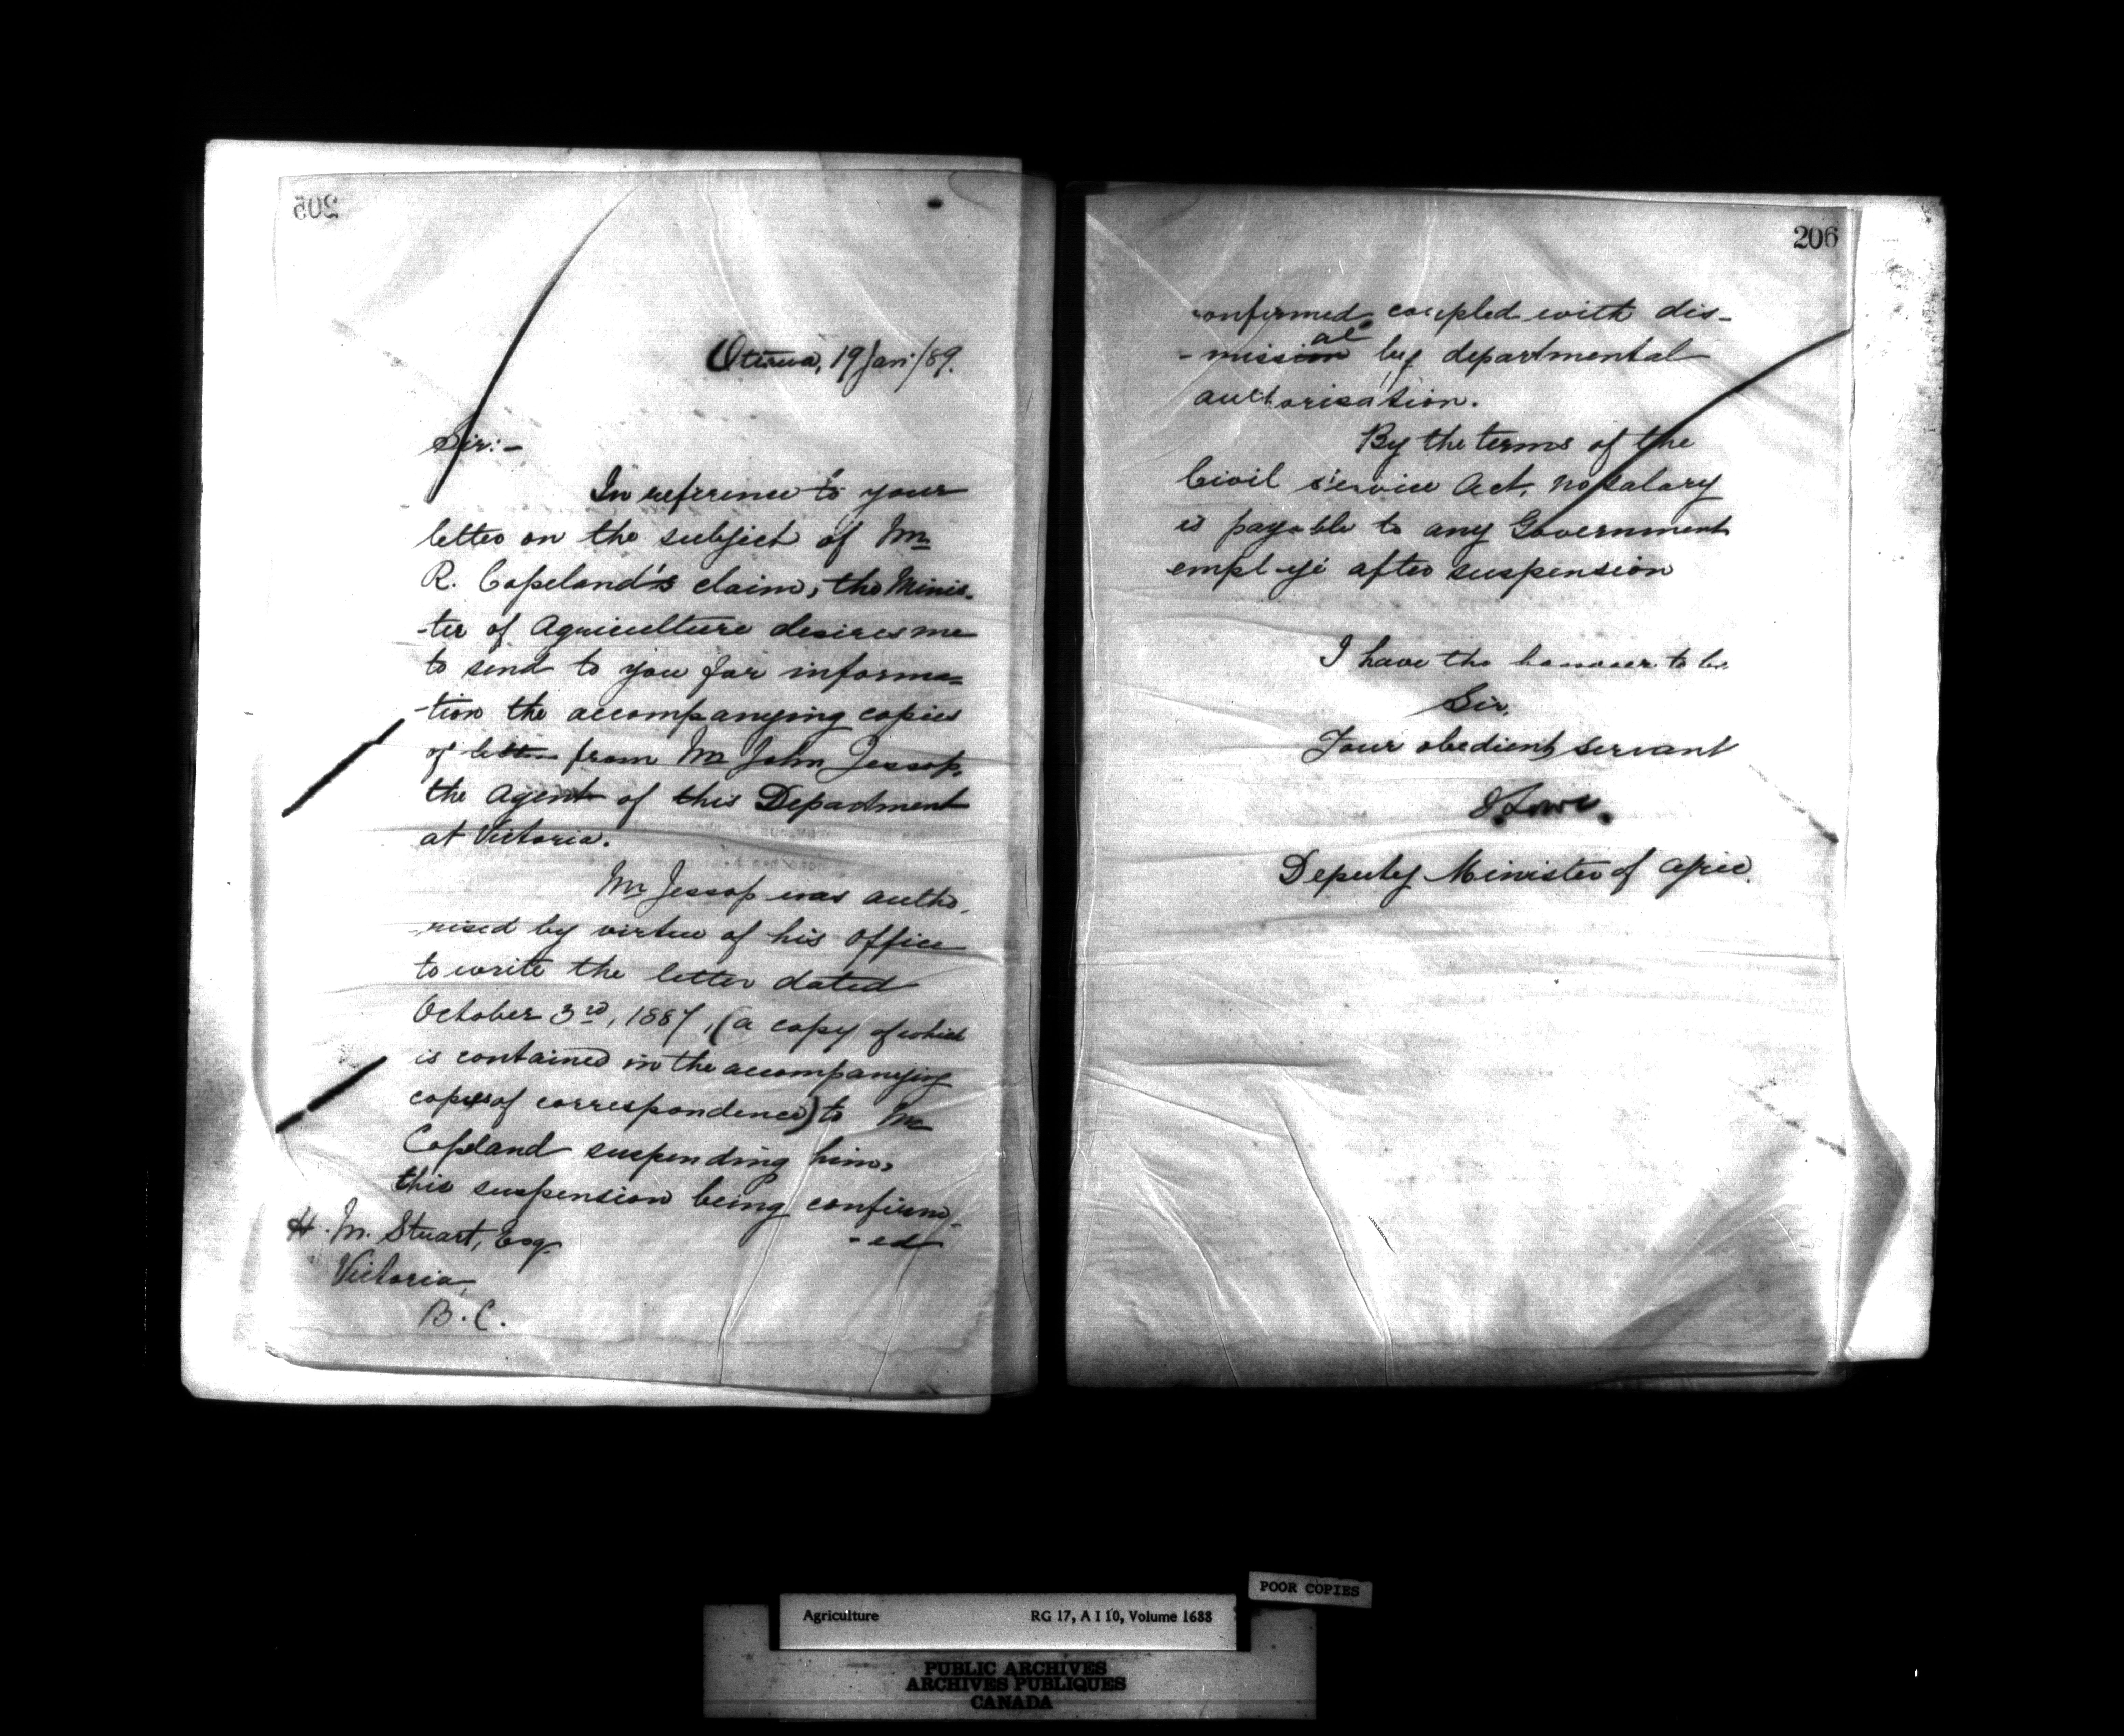 205
Ottawa, 19 Jan'/89.
Sir:-
In reference to your
letter on the subject of Mr
R. Copeland's claim, the Minis-
-ter of Agriculture desires me
to send to you for informa=
-tion the accompanying copies
of letters from Mr John Jessop,
the Agent of this Department
at Victoria.
Mr Jessop was autho-
-rised by virtue of his office
to write the letter dated
October 3rd, 1887, (a copy of which
is contained in the accompanying
copies of correspondence) to Mr
Copeland suspending him,
this suspension being confirm-
-ed
H. M. Stuart, Esq.
Victoria,
B.C.
206
confirmed coupled with dis-
-missal by departmental
authorisation.
By the terms of the
Civil service Act, no salary
is payable to any Government
employé after suspension
I have the honour to be
Sir,
Your obedient servant
J Lowe.
Deputy Minister of Agric.
POOR COPIES
Agriculture RG 17, A I 10, Volume 1688
PUBLIC ARCHIVES
ARCHIVES PUBLIQUES
CANADA